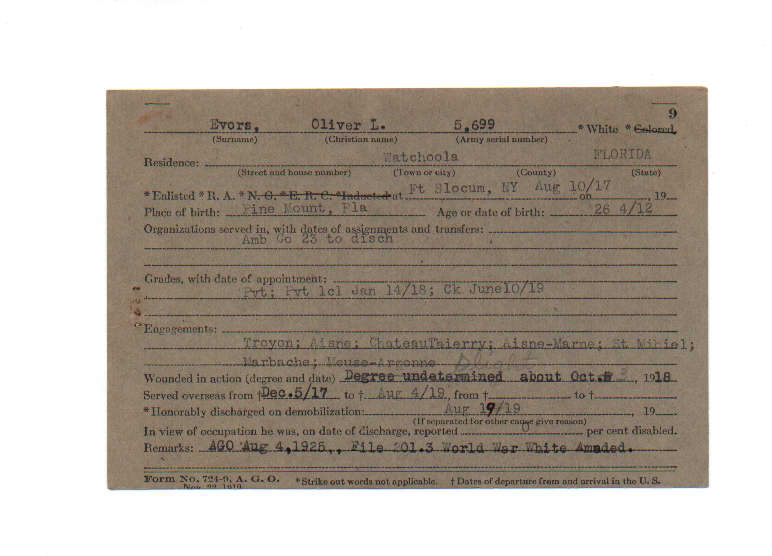 9
Evors, Oliver L. 5,699 * White * Colored.
(Surname) (Christian name) (Army serial number)
Residence: Watchoola FLORIDA
(Street and house number) (Town or city) (County) (State)
* Enlisted * R. A. * N. G. * E. R. C. * Inducted at Ft Slocum, NY on Aug 10/17, 19
Place of birth: Pine Mount, Fla Age or date of birth: 26 4/12
Organizations served in, with dates of assignments and transfers:
Amb Co 23 to disch
Grades, with date of appointment:
Pvt; Pvt 1cl Jan 14/18; Ck June10/19
Engagements:
Troyon; Aisne; ChateauThierry; Aisne-Marne; St Mihiel;
Marbache; Meuse-Argonne
Wounded in action (degree and date) Degree undetermined about Oct. 3, 1918
Served overseas from † Dec.5/17 to † Aug 4/19, from † to †
* Honorably discharged on demobilization: Aug 19/19, 19
(If separated for other cause give reason)
In view of occupation he was, on date of discharge, reported 0 per cent disabled.
Remarks: AGO Aug 4,1925,, File 201.3 World War White Amaded.
Form No. 724-9, A. G. O. * Strike out words not applicable. † Dates of departure from and arrival in the U. S.
Nov. 22, 1919